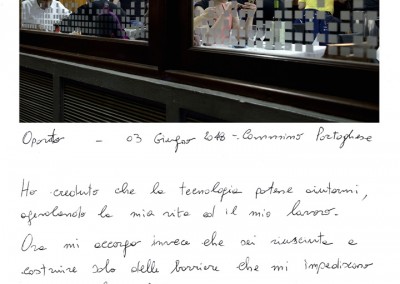 Oporto - 03 Giugno 2018 - Cammino Portoghese
Ho creduto che la tecnologia potesse aiutarmi,
agevolando la mia vita ed il mio lavoro.
Ora mi accorgo invece che sei riuscita a
costruire solo delle barriere che mi impediscono